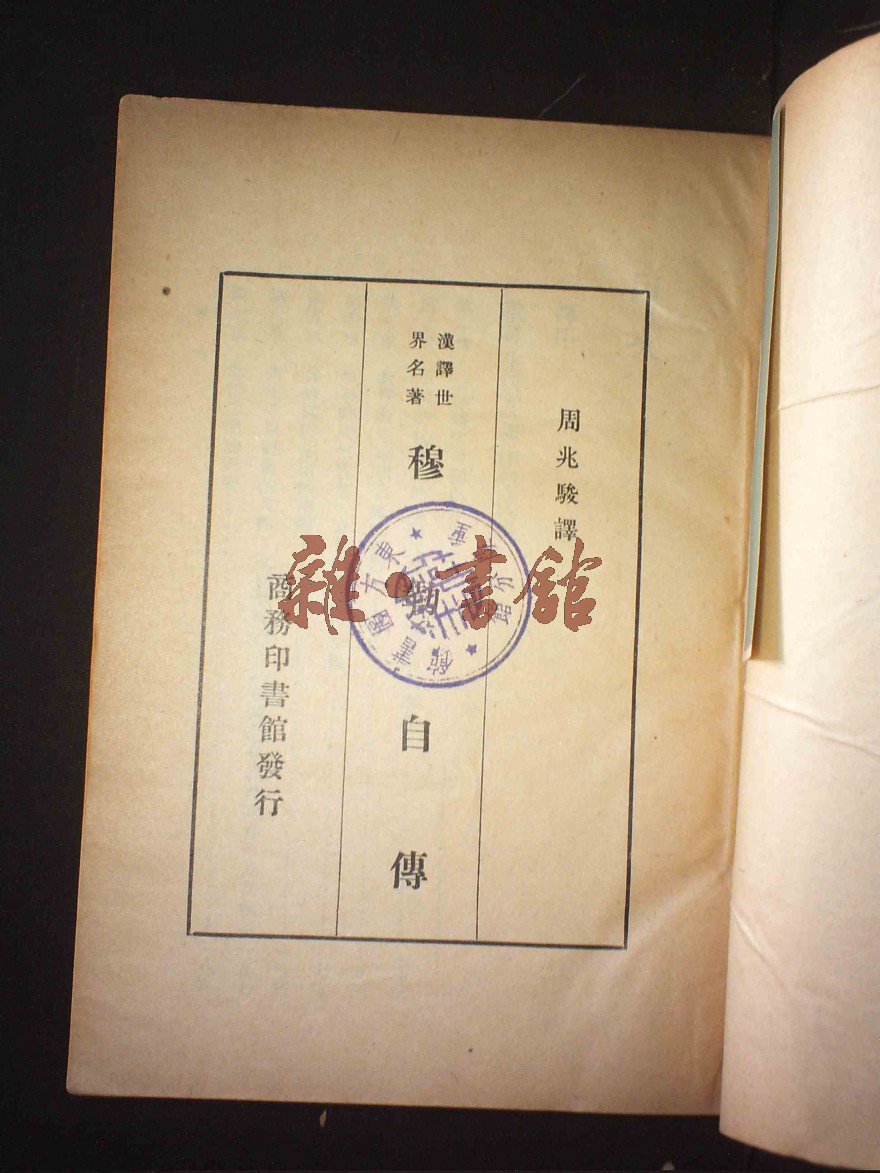 周兆駿譯
漢譯世
界名著
穆勒自傳
商務印書館發行
雜·書館